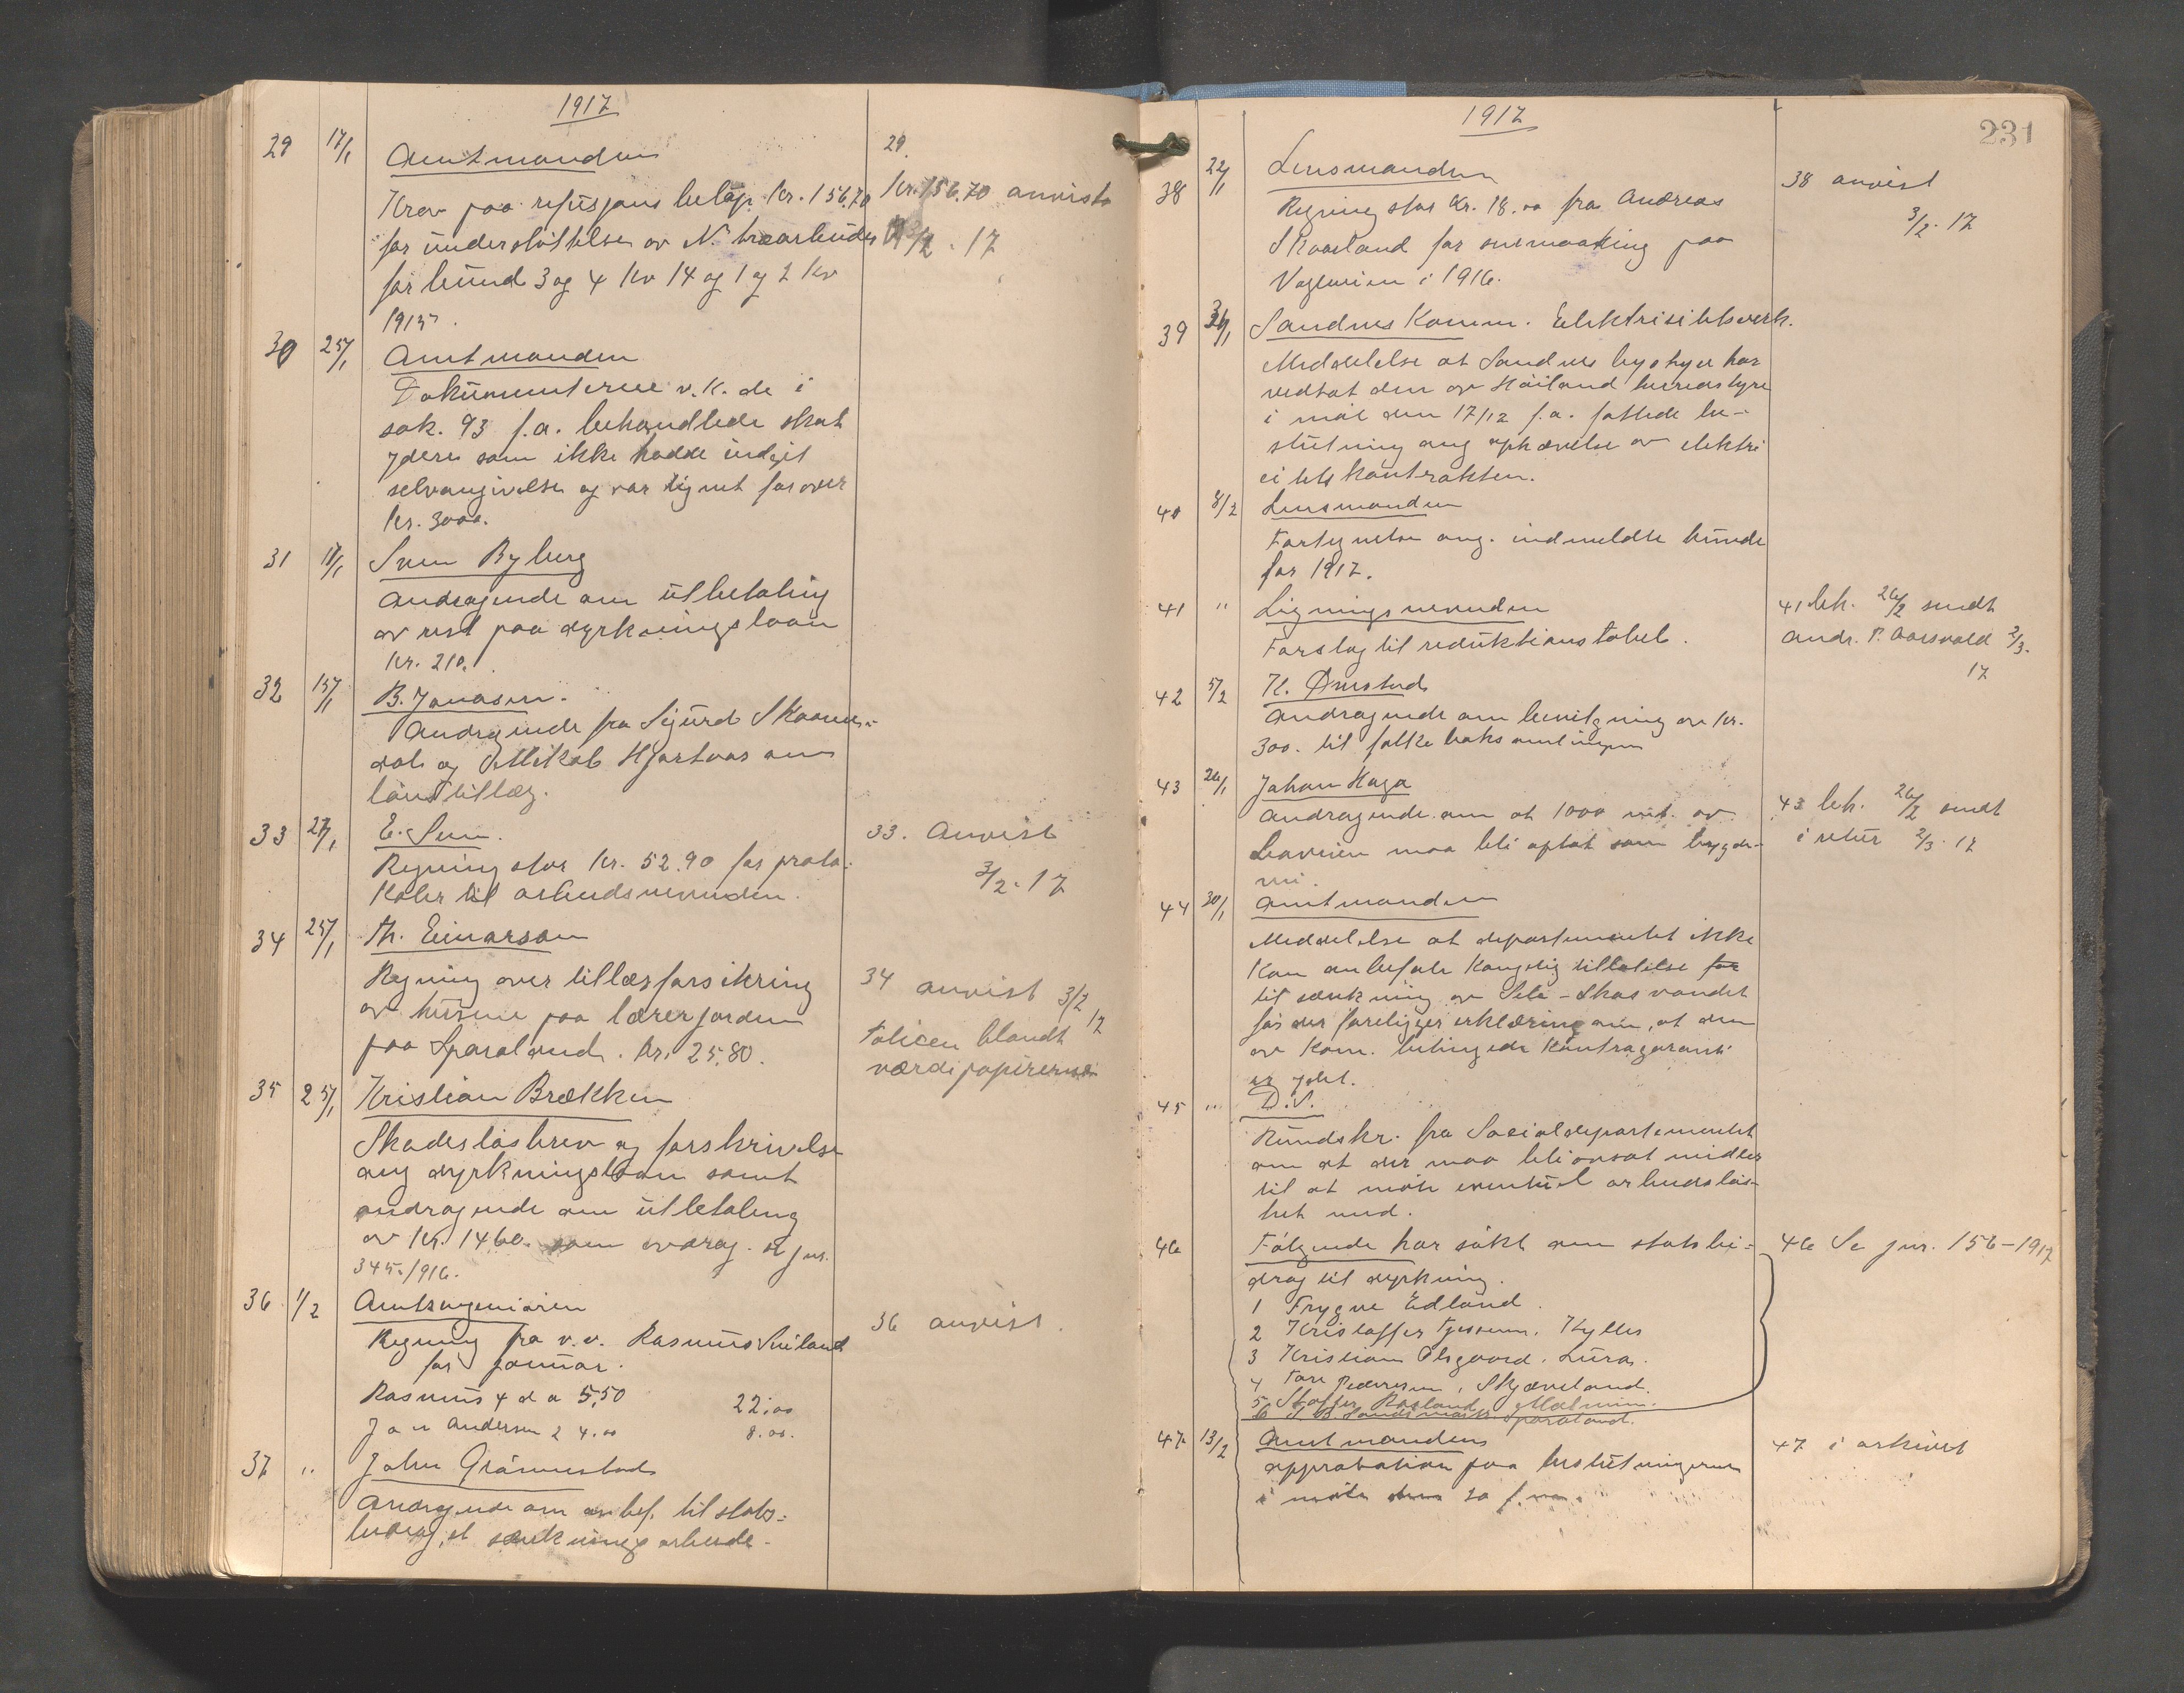 1917
29 17/1 Amtmanden 29.
Krav paa refusjons beløp kr. 156.70 kr. 156.70 anvist
for understøttelse av N. træarbeider 3/2. 17
forbund 3 og 4 kv 14 og 1 og 2 kv
1915.
30 25/1 Amtmanden
Dokumenterne v.k. de i
sak. 93 f.a. behandlede skat
ydere som ikke hadde indgit
selvangivelse og var lignet for over
kr. 3000.
31 18/1 Sven Byberg
Andragende om utbetaling
av rest paa dyrkningslaan
kr. 210.
32 15/1 B. Jonasen.
Andragende fra Sigurd Skaane-
dal og Mikal Hjortvar om
lønstillæg.
33 27/1 E. Sem. 33. Anvist
Regning stor kr. 52.90 for proto- 3/2. 17
koler til arbeidsnevnden.
34 25/1 Th. Einarson
Regning over tillægsforsikring 34 anvist 3/2
av husene paa lærerjorden 17
paa Sporaland. kr. 25.80. Policen blandt
værdipapirerne
35 25/1 Kristian Brækken
Skadesløsbrev og forskrivelse
ang dyrkningslaan samt
andragende om utbetaling
av kr. 1460. som avdrag. se jnr.
345./916.
36 1/2 Amtsingeniøren 36 anvist.
Regning fra v.v. Rasmus Sviland
for januar.
Rasmus 4 d a 5.50 22.00
Jon Anderson 2 4.00 8.00.
37 " John Grønnestad
Andragende om anbef. til stats-
bidrag til sænkningsarbeide.
231
1917
38 22/1 Lensmanden 38 anvist
Regning stor kr. 18.00 fra Andreas 3/2. 17
Skaarland for snemaaking paa
Vagleveien i 1916.
39 31/1 Sandnes Komm. Elektrisitetsverk.
Meddelelse at Sandnes bystyre har
vedtat den av Høiland herredstyre
i møte den 17/12 f.a. fattede be-
slutning ang ophævelse av elektri
citetskontrakten.
40 8/2 Lensmanden
Fortegnelse ang. indmeldte hunde
for 1917.
41 " Ligningsnevnden 41 beh. 26/2 sendt
Forslag til reduktionstabel. Andr. P. Aarsvold 2/3.
17
42 5/2 K. Ømstad
Andragende om bevilgning av kr.
300. til folkeboksamlingen
43 26/1 Johan Haga 43 beh. 26/2 sendt
Andragende om at 1000 mt. av i retur 2/3. 17
veien maa bli optat som bygde-
vei.
44 30/1 Amtmanden
Meddelelse at departementet ikke
kan anbefale kongelig tillatelse for
til sænkning av Sele-Skasvandet
før der foreligger erklæring om, at den
av kom. betingede kontragaranti
er ydet.
45 " D.S.
Rundskr. fra Socialdepartementet
om at der maa bli avsat midler
til at møte eventuel arbeidsløs-
het med.
46 Følgende har søkt om statsbi- 46 Se jnr. 156-1917
drag til dyrkning.
1 Trygve Edland.
2 Kristoffer Tjessem. Kylles
3 Kristian Algaard. Lura.
4 Tore Pedersen, Skjæveland.
5 Staffer Rosland Malmin.
6 Sporaland.
47 13/2 Amtmandens 47 i arkivet
approbation paa beslutningerne
i møte den 20 f.m.